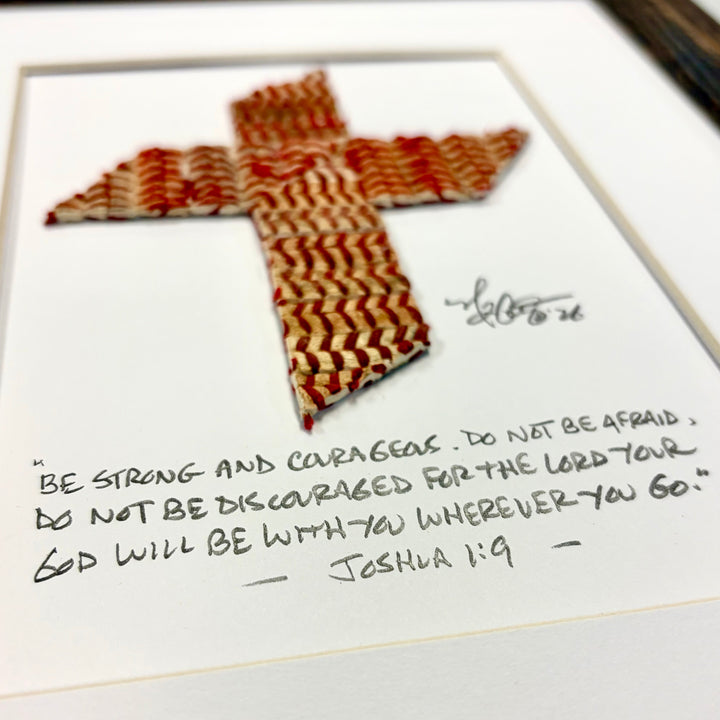 "BE STRONG AND COURAGEOUS. DO NOT BE AFRAID.
DO NOT BE DISCOURAGED FOR THE LORD YOUR
GOD WILL BE WITH YOU WHEREVER YOU GO."
— JOSHUA 1:9 —